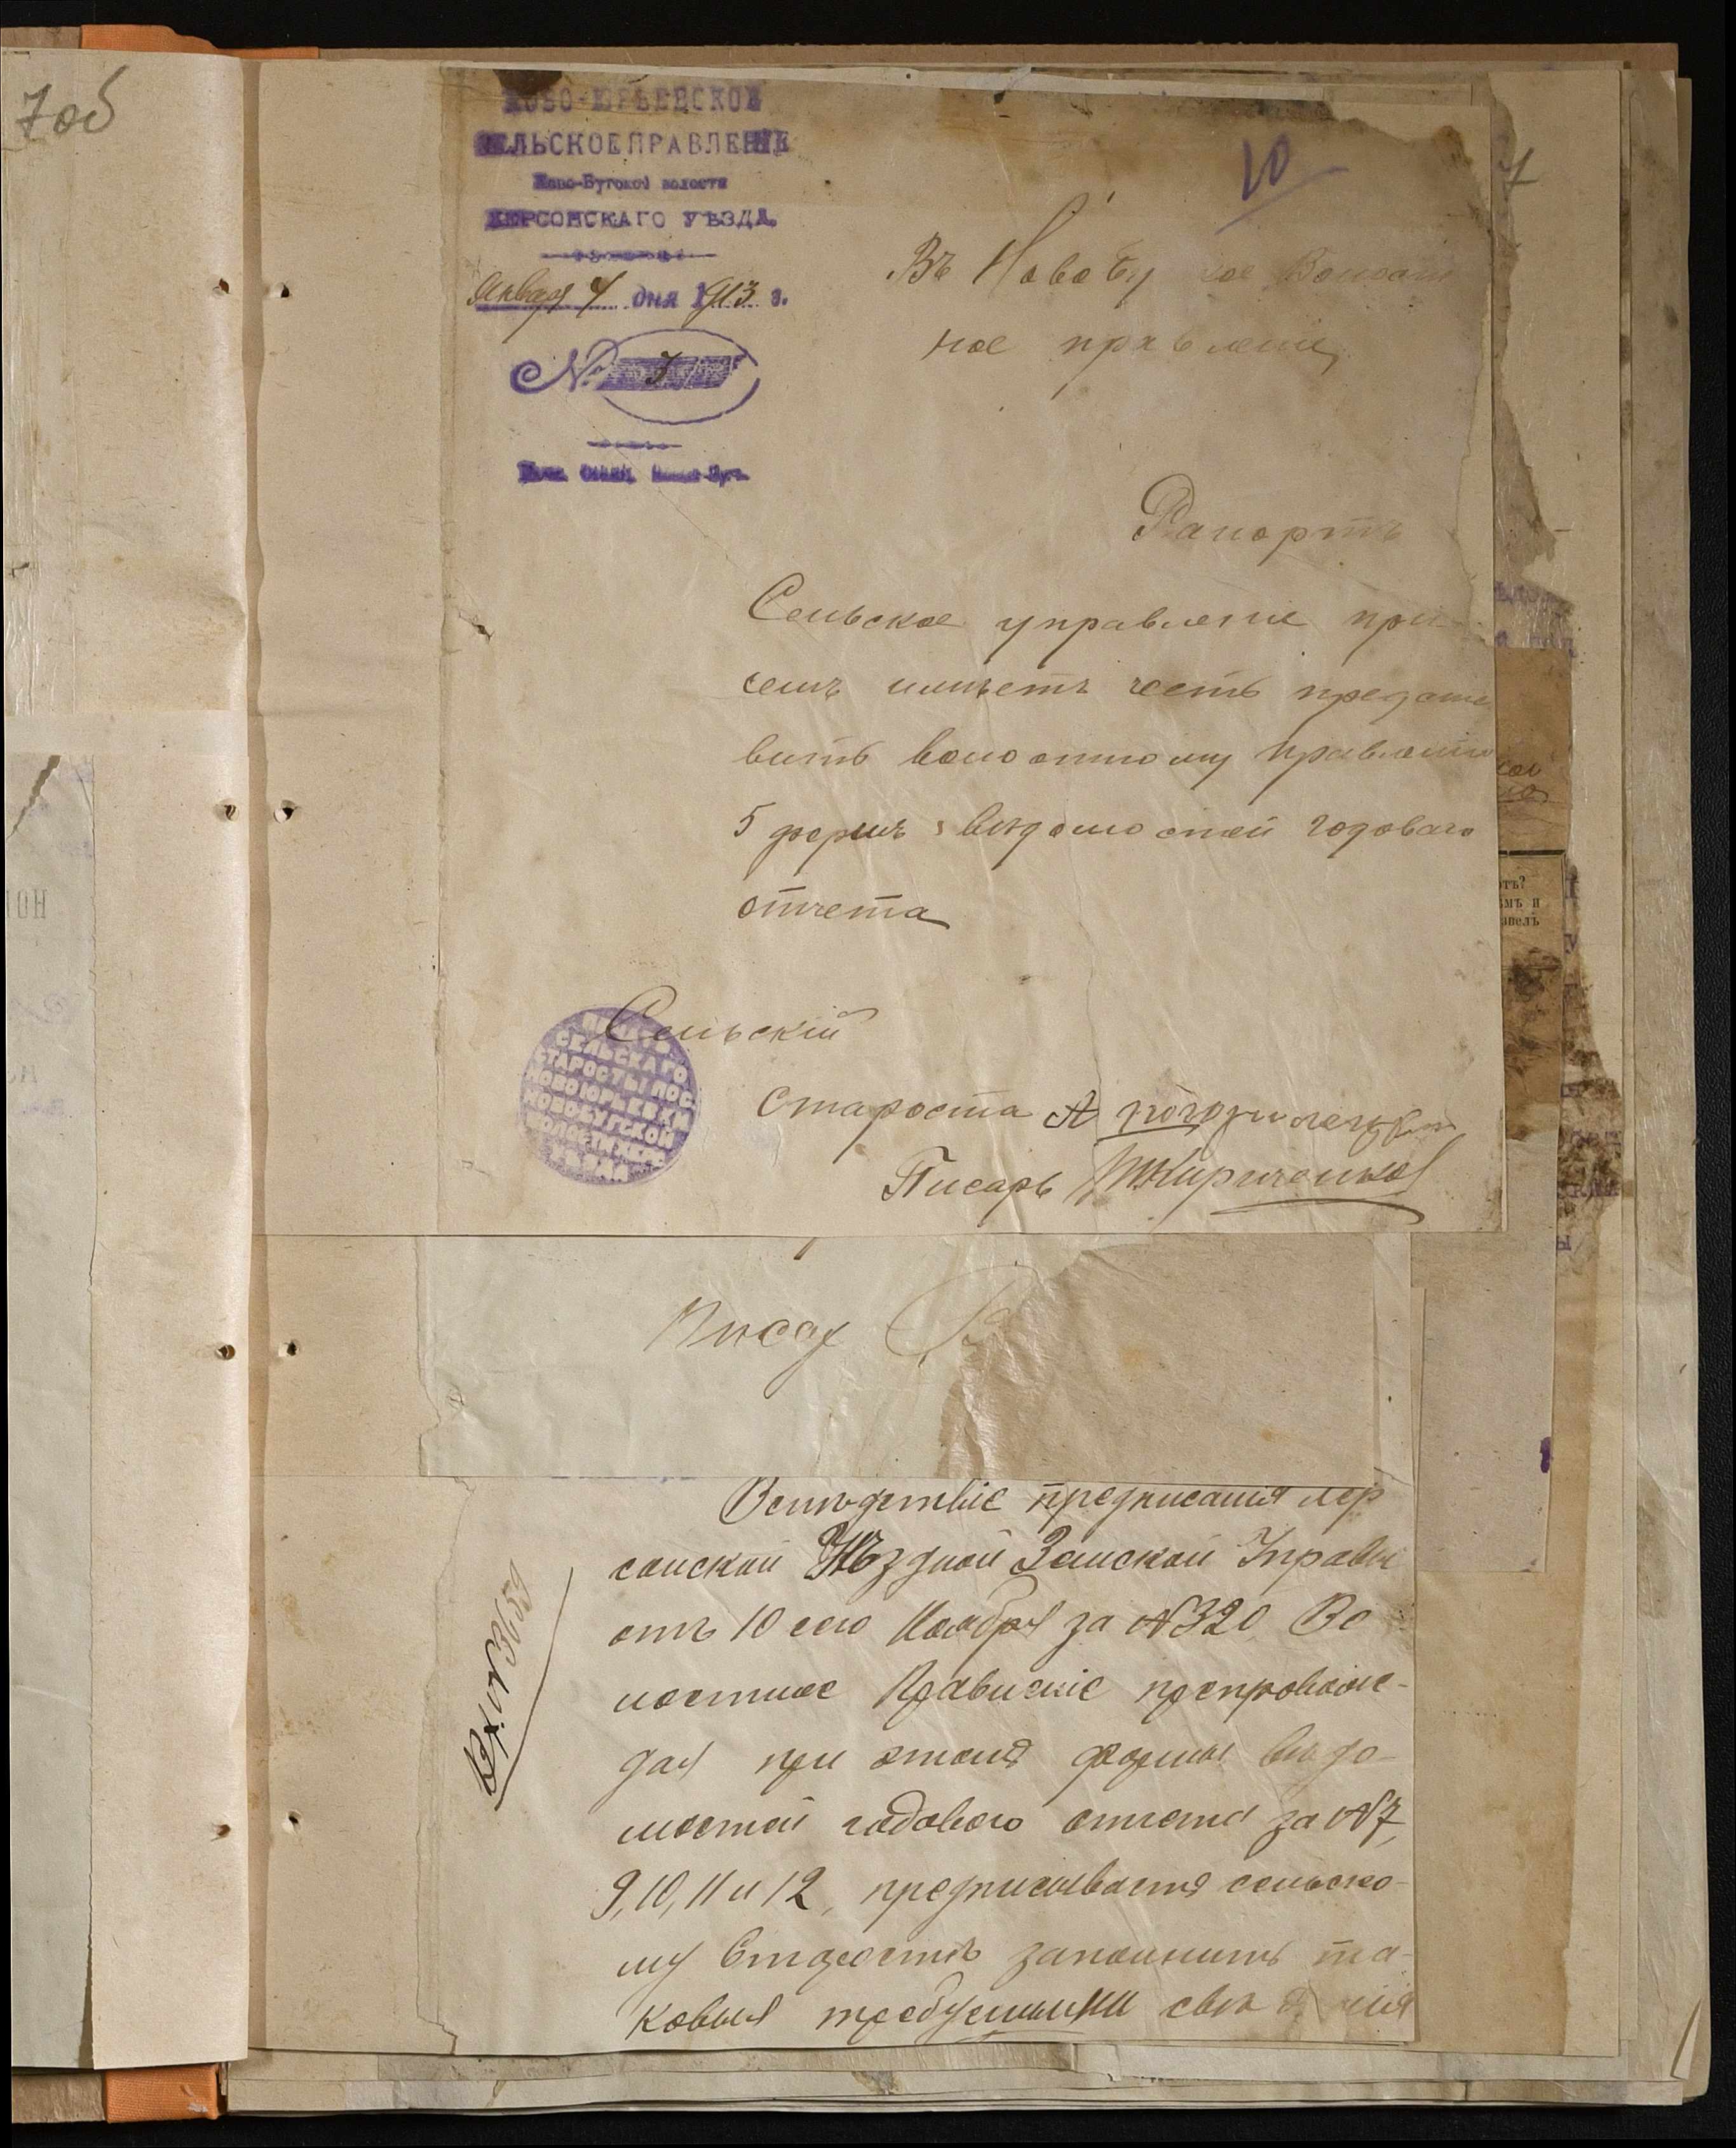 7об
НОВО-ЮРЬЕВСКОЕ
СЕЛЬСКОЕ ПРАВЛЕНІЕ
Ново-Бугской волости
ХЕРСОНСКАГО УѢЗДА.
Января 4 дня 1913 г.
№ 7
10
7
Въ Новобу кое Волост
ное правлені
Рапортъ
Сельское управление при
семъ имѣетъ честь предста
вить волостному правлению
5 формъ вѣдомостей годоваго
отчета
Сельскій
Староста А
Писарь Кириченко
ПЕЧАТЬ
СЕЛЬСКАГО
СТАРОСТЫ ПОС.
НОВОЮРЬЕВКИ
НОВОБУГСКОЙ
ВОЛОСТИ ХЕРС.
УѢЗДА
Писар
Вслѣдствіе предписания Хер
сонской Уѣздной Земской Управы
отъ 10 сего Ноября за №320 Во
лостное Правленіе препровож-
дая при этомъ формы вѣдо-
мостей годового отчета за №7,
9, 10, 11 и 12, предписывается сельско-
му Старостѣ заполнить та-
ковыя требуемыми свѣд нія
Вх. №3659
отъ?
имъ и